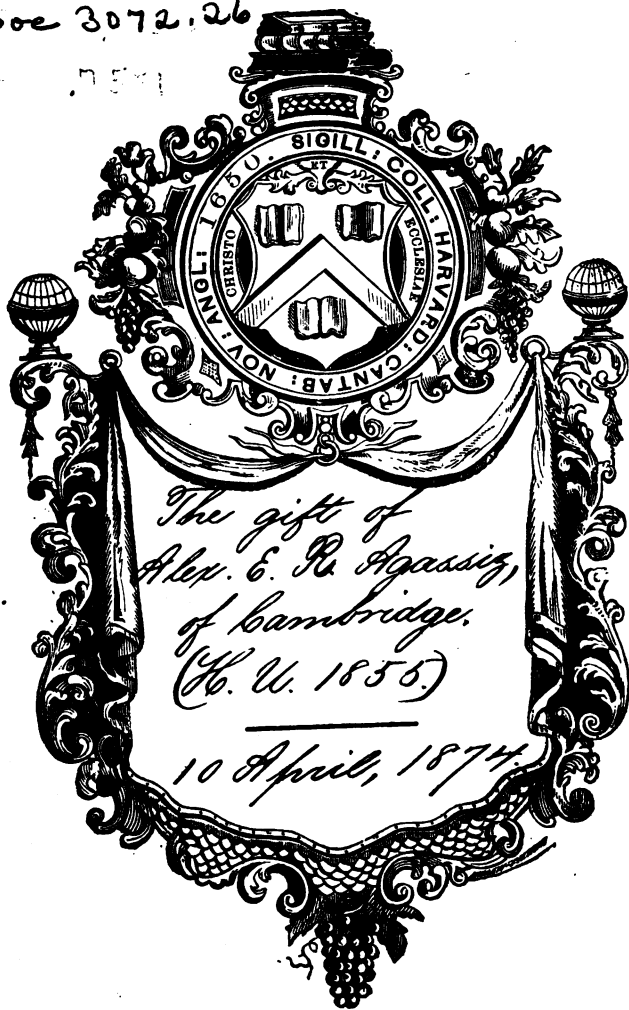 3072.26
SIGILL: COLL: HARVARD: CANTAB: NOV: ANGL: 1650.
CHRISTO ET ECCLESIAE
The gift of
Alex. E. R. Agassiz,
of Cambridge.
(H. U. 1855.)
10 April, 1874.